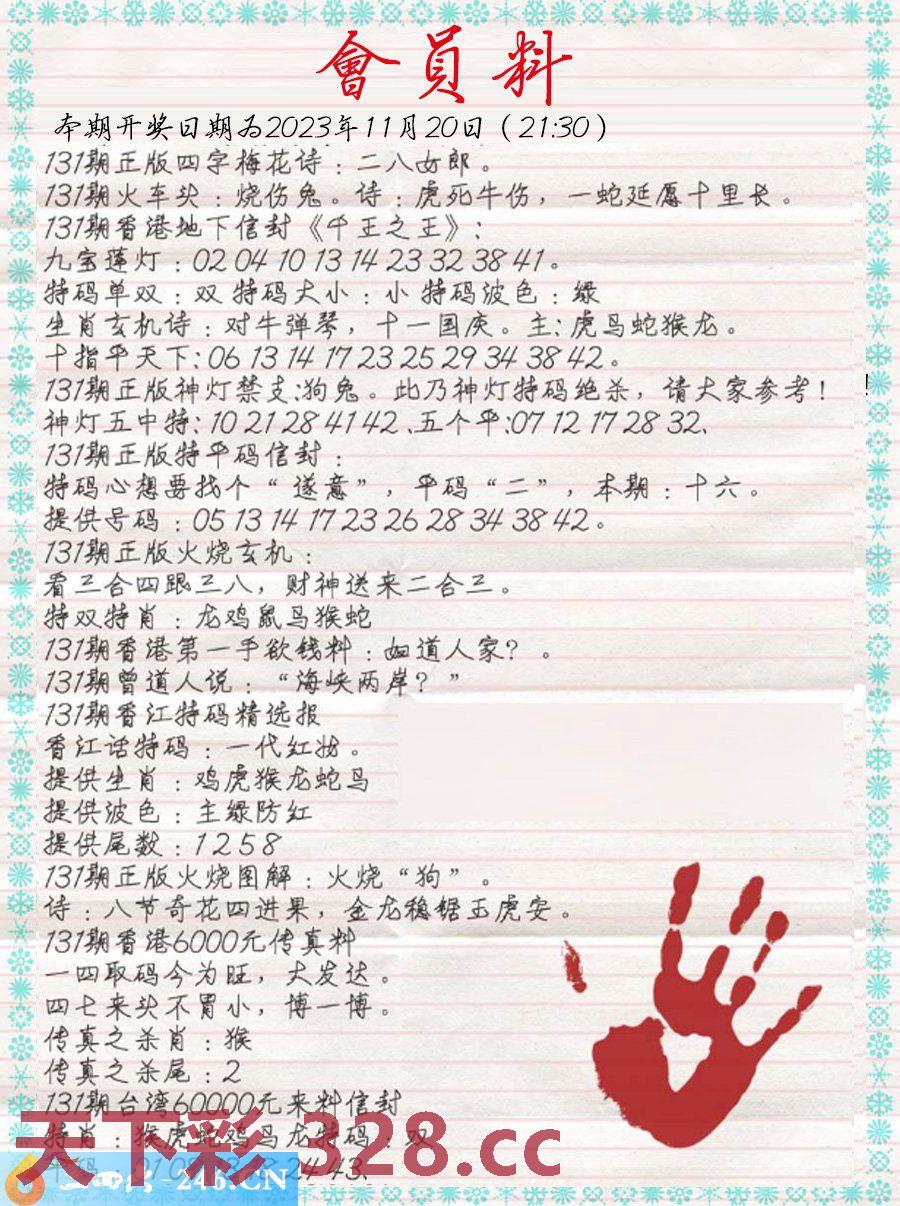 會員料
本期开奖日期为2023年11月20日（21:30）
131期正版四字梅花诗：二八女郎。
131期火车头：烧伤兔。诗：虎死牛伤，一蛇延愿十里长。
131期香港地下信封《千王之王》:
九宝莲灯：02 04 10 13 14 23 32 38 41。
特码单双：双 特码大小：小 特码波色：绿
生肖玄机诗：对牛弹琴，十一国庆。主:虎鸟蛇猴龙。
十指平天下:06 13 14 17 23 25 29 34 38 42。
131期正版神灯禁支:狗兔。此乃神灯特码绝杀，请大家参考！!
神灯五中特:10 21 28 41 42、五个平:07 12 17 28 32、
131期正版特平码信封：
特码心想要找个“遂意”，平码“二”，本期：十六。
提供号码：05 13 14 17 23 26 28 34 38 42。
131期正版火烧玄机：
看三合四跟三八，财神送来二合三。
特双特肖：龙鸡鼠马猴蛇
131期香港第一手欲钱料：如道人家？。
131期曾道人说：“海峡两岸？”
131期香江特码精选报
香江话特码：一代红妆。
提供生肖：鸡虎猴龙蛇马
提供波色：主绿防红
提供尾数：1 2 5 8
131期正版火烧图解：火烧“狗”。
诗：八节奇花四进果，金龙稳锯玉虎安。
131期香港6000元传真料
一四取码今为旺，大发达。
四七来头不冒小，博一博。
传真之杀肖：猴
传真之杀尾：2
131期台湾60000元来料信封
特肖：猴虎蛇鸡马龙特码：双
天下彩.328.cc
246.CN